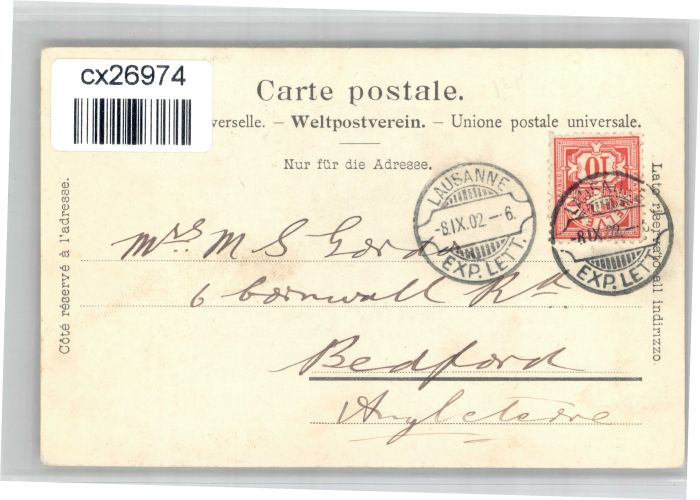 cx26974
Carte postale.
verselle. – Weltpostverein. – Unione postale universale.
Nur für die Adresse.
Côté réservé à l'adresse.
Lato riservato all indirizzo.
LAUSANNE
-8.IX.02.–6.
EXP. LETT.
10
-8.IX.02.
EXP. LETT.
Mrs M S Gordon
6 Cornwall Rd
Bedford
Angleterre